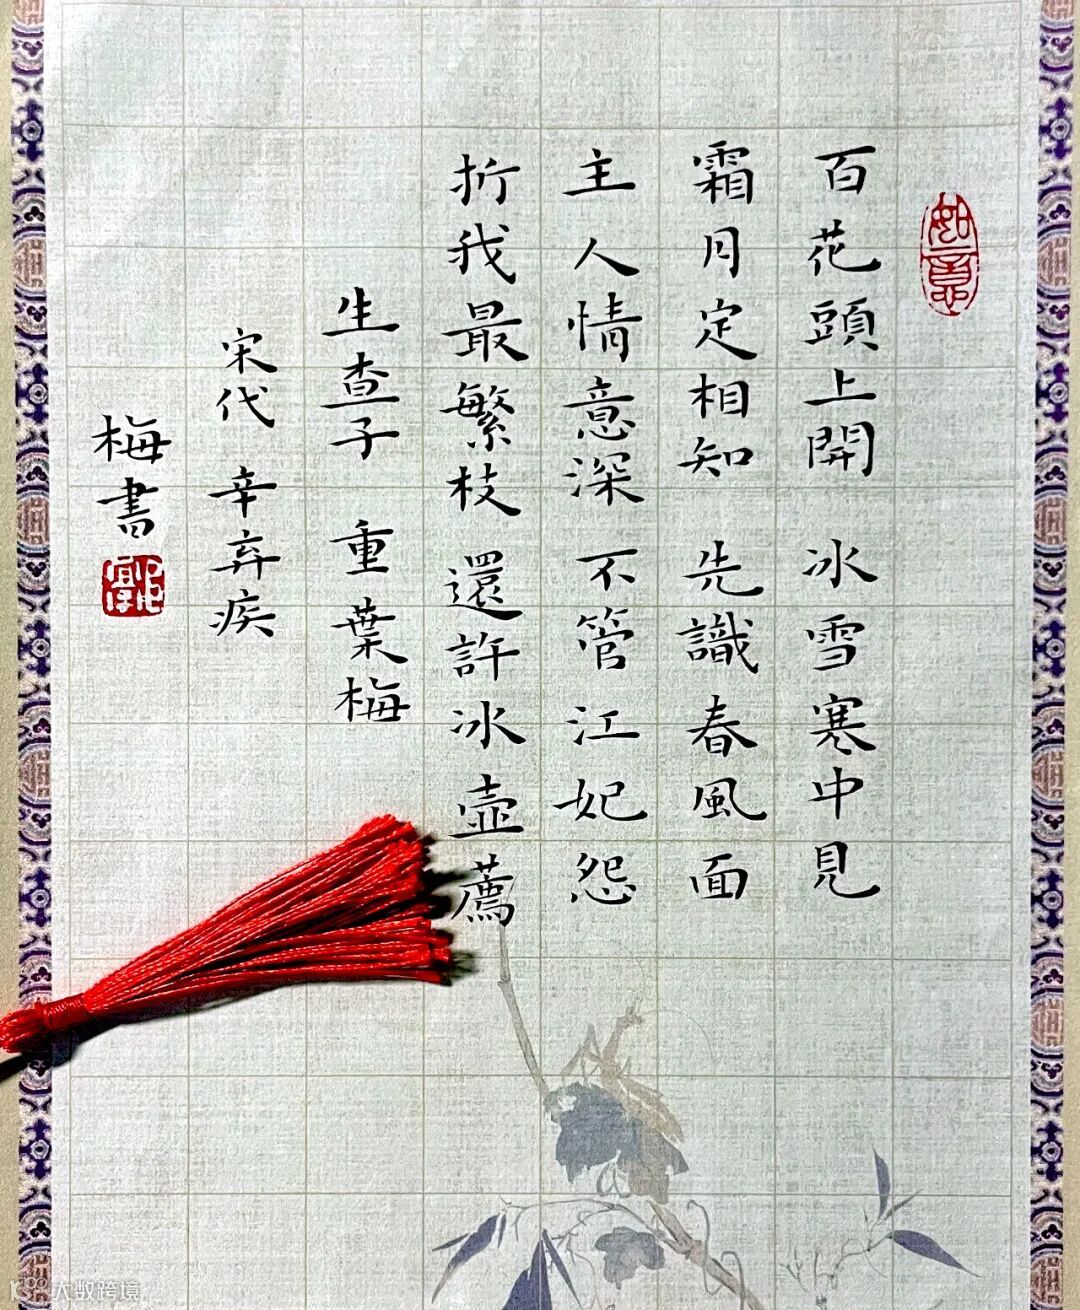 如意
百花頭上開 冰雪寒中見
霜月定相知 先識春風面
主人情意深 不管江妃怨
折我最繁枝 還許冰壺薦
生查子 重葉梅
宋代 辛弃疾
梅書
大数跨境